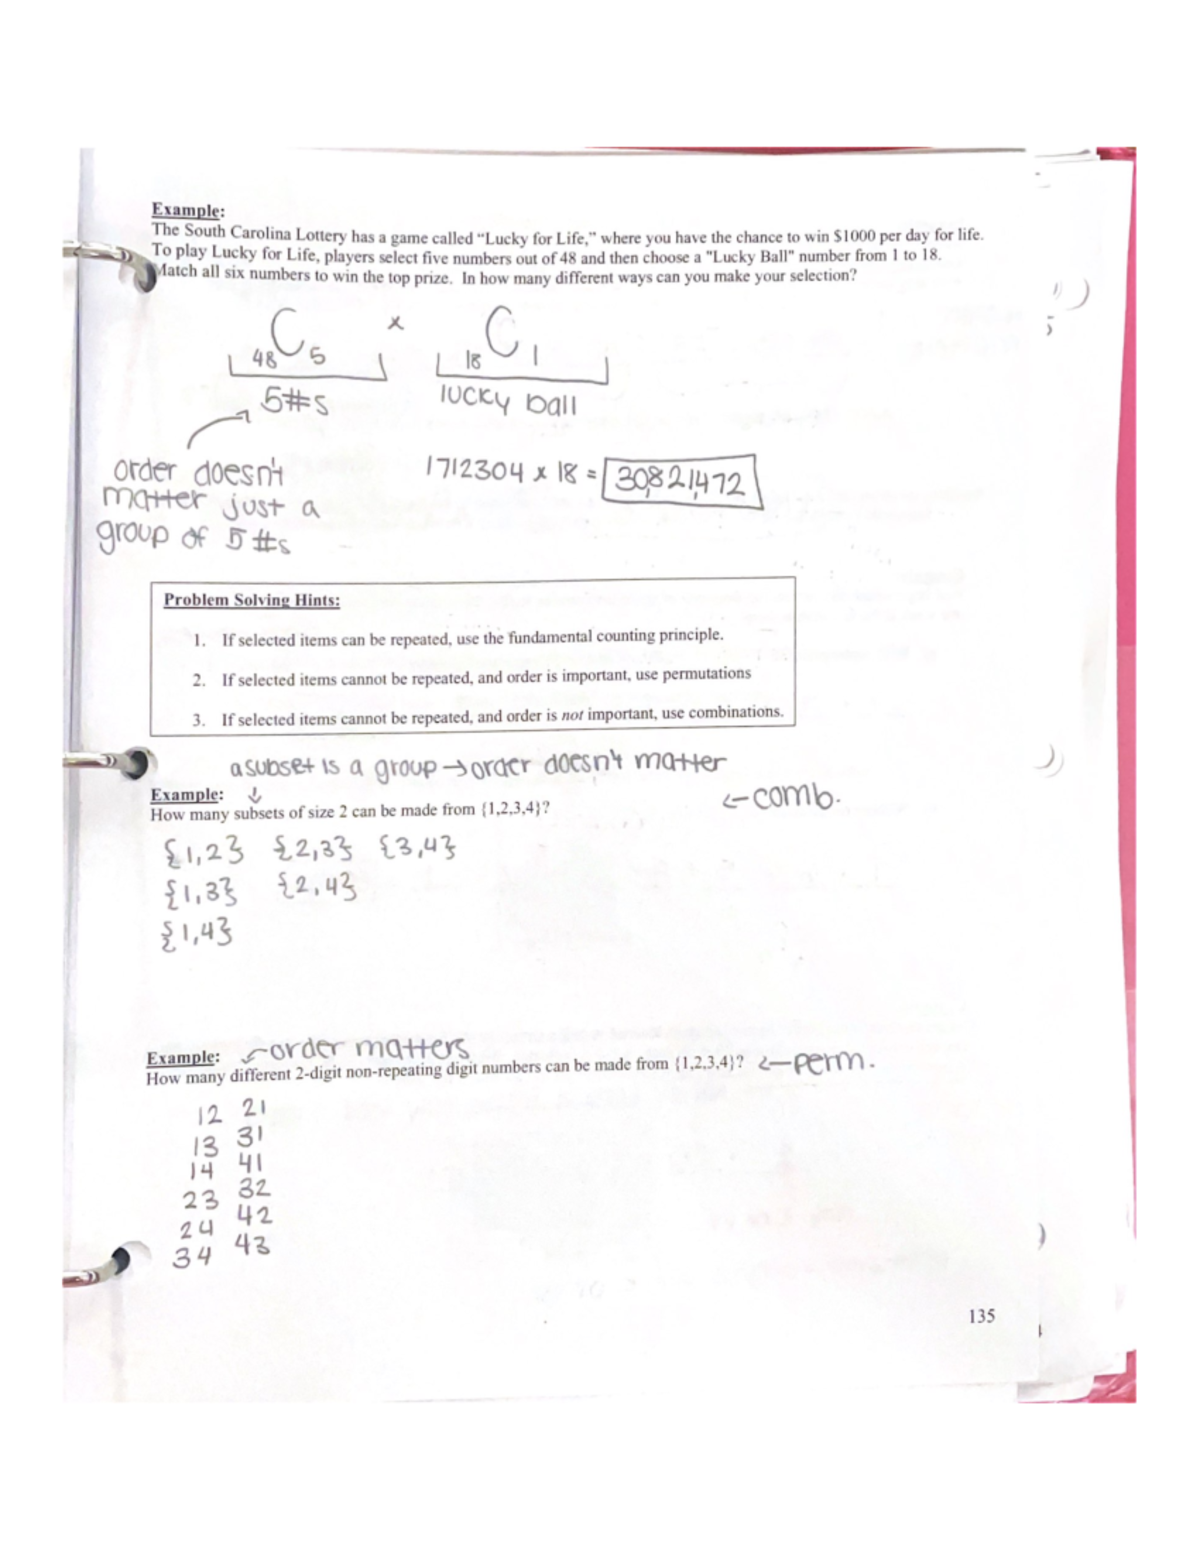 Example:
The South Carolina Lottery has a game called "Lucky for Life," where you have the chance to win $1000 per day for life.
To play Lucky for Life, players select five numbers out of 48 and then choose a "Lucky Ball" number from 1 to 18.
Match all six numbers to win the top prize. In how many different ways can you make your selection?
48C5 x 18C1
5#s lucky ball
order doesn't
matter just a
group of 5 #s
1712304 x 18 = 30,821,472
Problem Solving Hints:
1. If selected items can be repeated, use the fundamental counting principle.
2. If selected items cannot be repeated, and order is important, use permutations
3. If selected items cannot be repeated, and order is not important, use combinations.
a subset is a group → order doesn't matter
Example: ↓
How many subsets of size 2 can be made from {1,2,3,4}? ← comb.
{1,2} {2,3} {3,4}
{1,3} {2,4}
{1,4}
Example: order matters
How many different 2-digit non-repeating digit numbers can be made from {1,2,3,4}? ← perm.
12 21
13 31
14 41
23 32
24 42
34 43
135